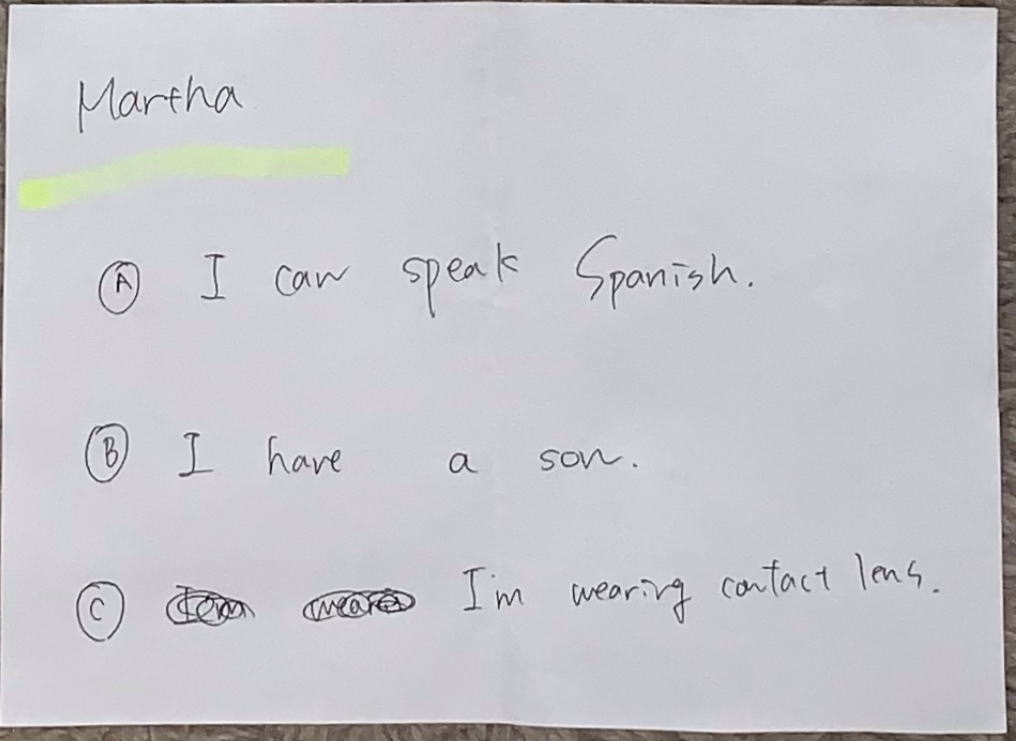 Martha
Ⓐ I can speak Spanish.
Ⓑ I have a son.
Ⓒ I'm wearing contact lens.